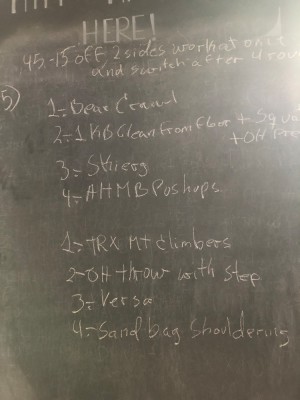 HERE!
45-15 off 2 sides work at one
and switch after 4 rou
5)
1- Bear Crawl
2- 1 KB Clean from floor + Squ
+ OH Pre
3- Skierg
4- AHMB Poshups
1- TRX Mt climbers
2- OH throw with step
3- Versa
4- Sand bag Shouldering